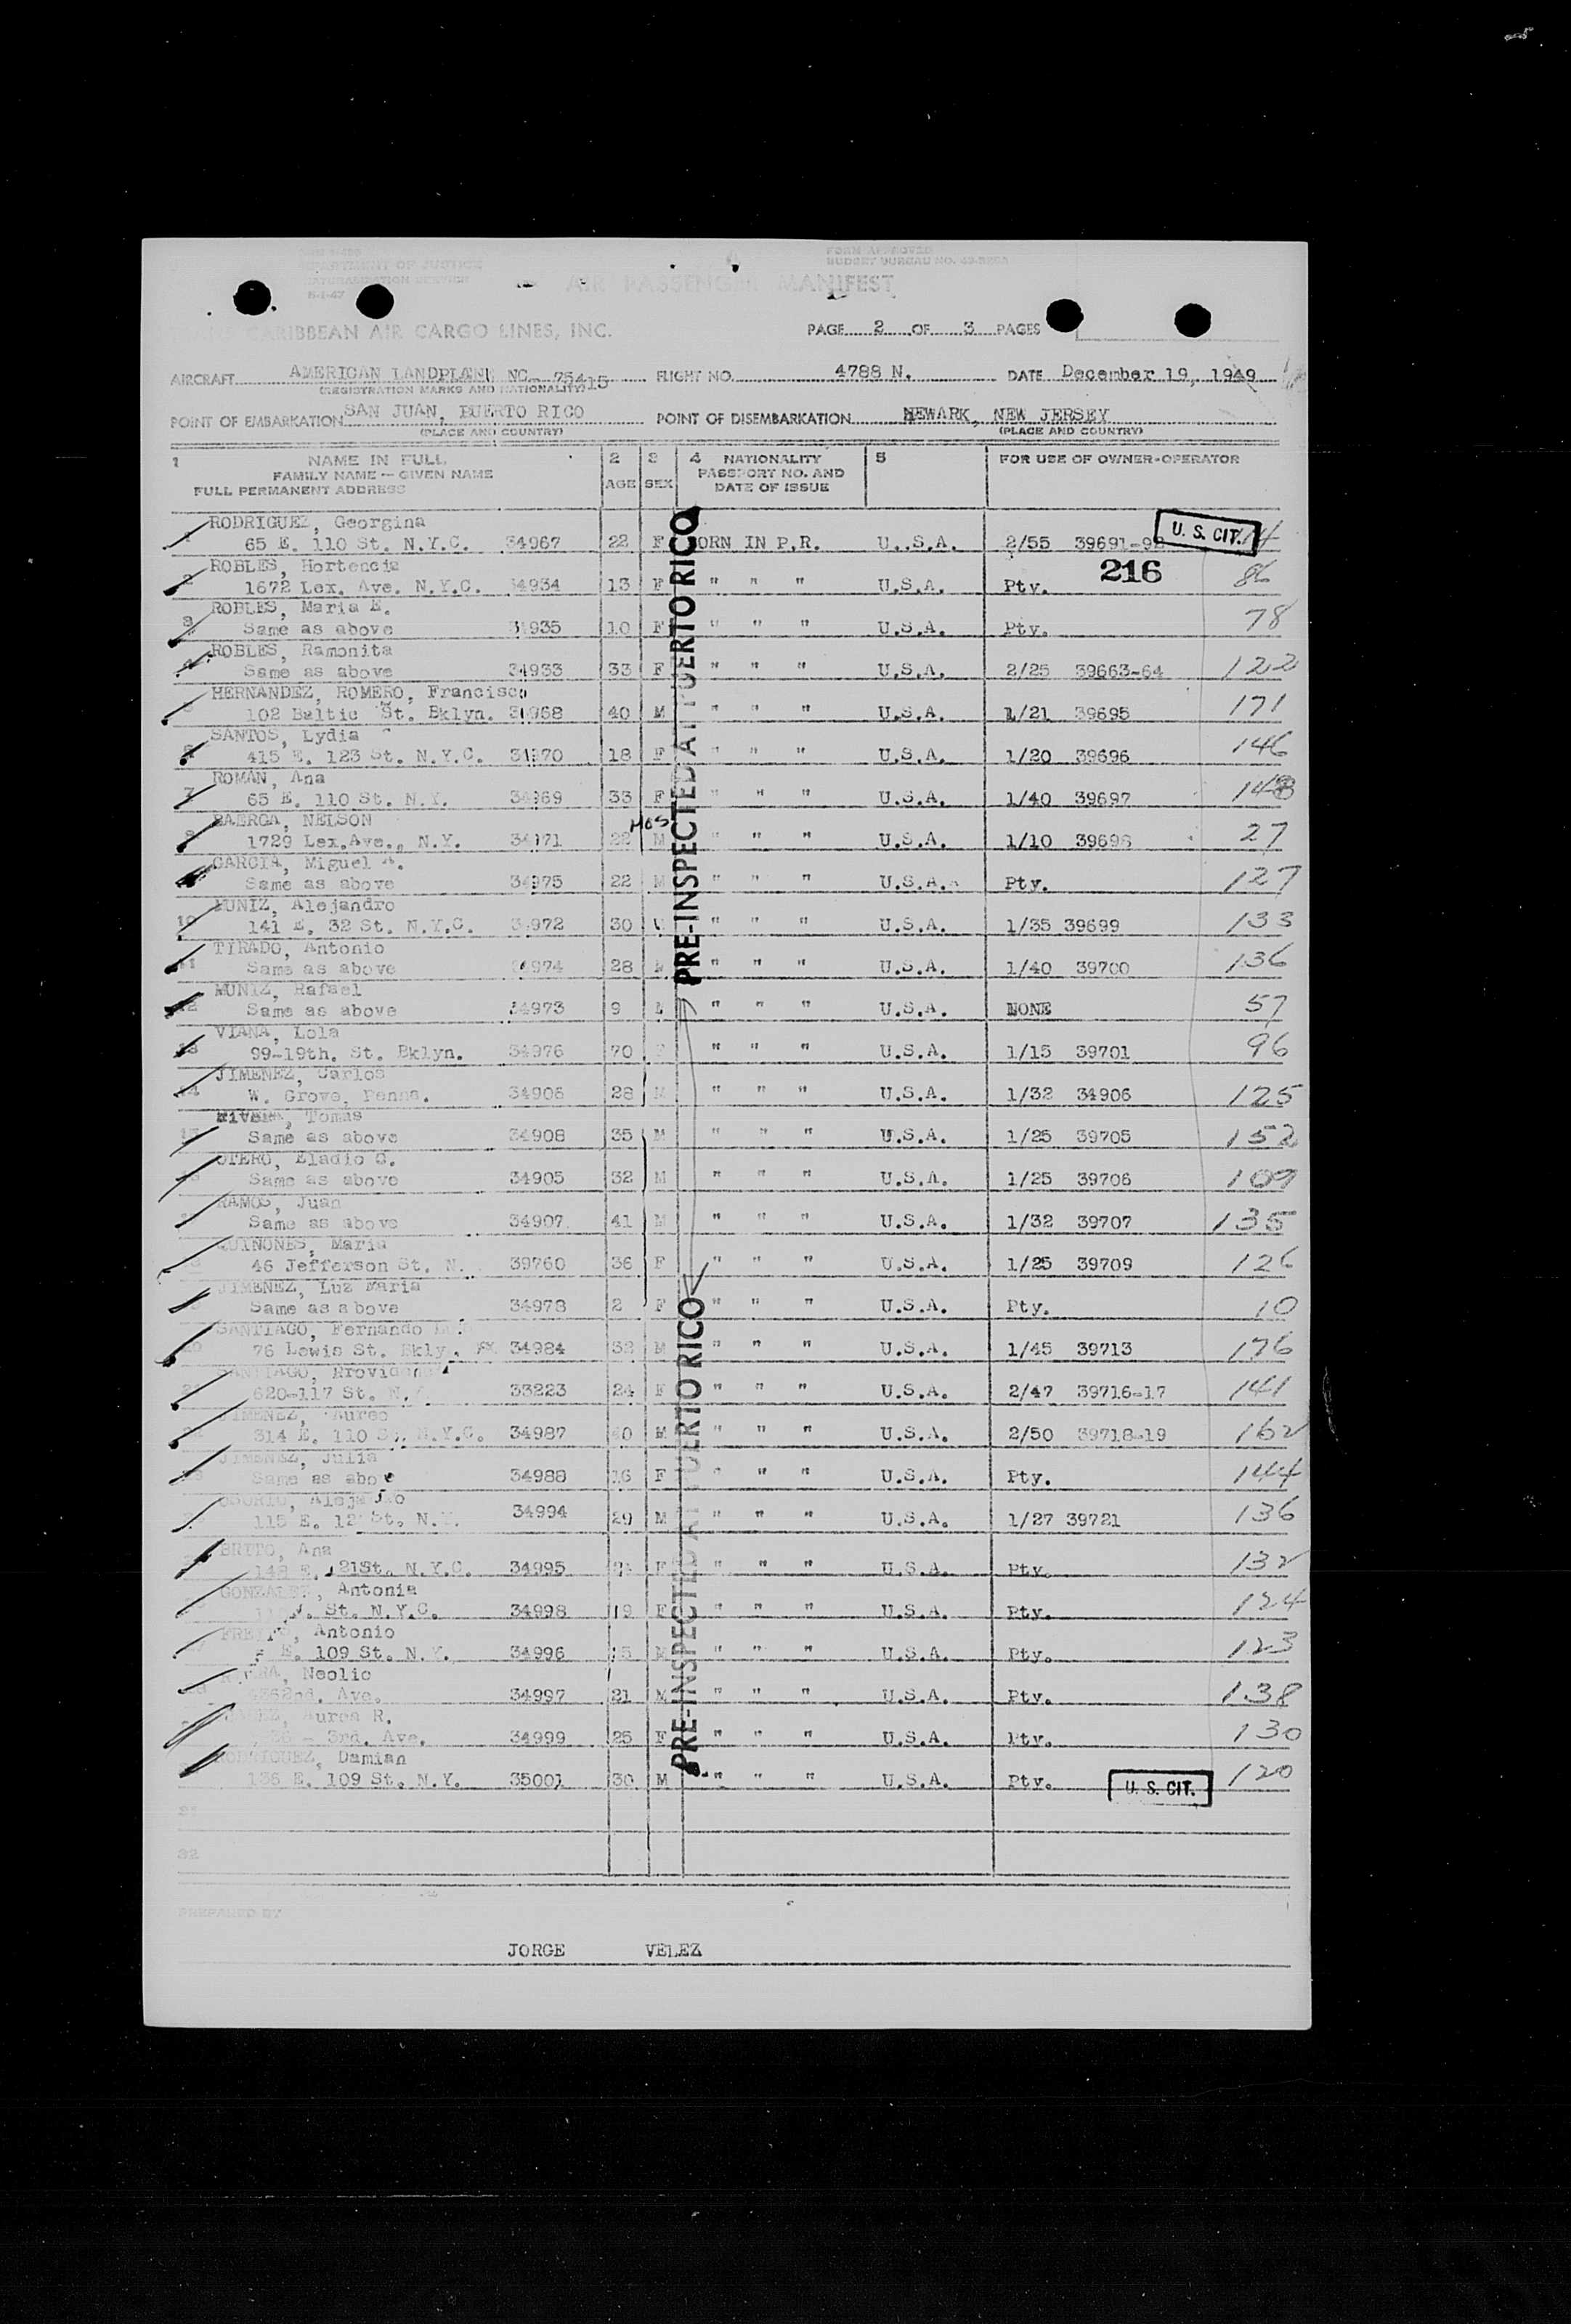 DEPARTMENT OF JUSTICE
FORM APPROVED
BUDGET BUREAU NO.
AIR PASSENGER MANIFEST
CARIBBEAN AIR CARGO LINES, INC.
PAGE 2 OF 3 PAGES
AIRCRAFT AMERICAN LANDPLANE NC- 75415 FLIGHT NO. 4788 N. DATE December 19, 1949
(REGISTRATION MARKS AND NATIONALITY)
POINT OF EMBARKATION SAN JUAN, PUERTO RICO POINT OF DISEMBARKATION NEWARK, NEW JERSEY
(PLACE AND COUNTRY) (PLACE AND COUNTRY)
1 NAME IN FULL 2 3 4 NATIONALITY 5 FOR USE OF OWNER-OPERATOR
FAMILY NAME — GIVEN NAME PASSPORT NO. AND
FULL PERMANENT ADDRESS AGE SEX DATE OF ISSUE
RODRIGUEZ, Georgina U. S. CIT.
65 E. 110 St. N.Y.C. 34967 22 F BORN IN P.R. U.S.A. 2/55
ROBLES, Hortencia 216
1672 Lex. Ave. N.Y.C. 34934 13 F " " " U.S.A. Pty. 86
ROBLES, Maria E.
Same as above 34935 10 F " " " U.S.A. Pty. 78
ROBLES, Ramonita
Same as above 34933 33 F " " " U.S.A. 2/25 39663-64 122
HERNANDEZ, ROMERO, Francisco
102 Baltic St. Bklyn. 34968 40 M " " " U.S.A. 1/21 39695 171
SANTOS, Lydia
415 E. 123 St. N.Y.C. 34970 18 F " " " U.S.A. 1/20 39696 146
ROMAN, Ana
65 E. 110 St. N.Y. 34969 33 F " " " U.S.A. 1/40 39697 148
BAERGA, NELSON mos
1729 Lex.Ave., N.Y. 34971 22 M " " " U.S.A. 1/10 39698 27
GARCIA, Miguel A.
Same as above 34975 22 M " " " U.S.A. Pty. 127
MUNIZ, Alejandro
141 E. 32 St. N.Y.C. 34972 30 " " " U.S.A. 1/35 39699 133
TIRADO, Antonio
Same as above 34974 28 M " " " U.S.A. 1/40 39700 136
MUNIZ, Rafael
Same as above 34973 9 M " " " U.S.A. NONE 57
VIANA, Lola
99-19th. St. Bklyn. 34976 70 F " " " U.S.A. 1/15 39701 96
JIMENEZ, Carlos
W. Grove, Penna. 34906 28 M " " " U.S.A. 1/32 34906 125
RIVERA, Tomas
Same as above 34908 35 M " " " U.S.A. 1/25 39705 152
OTERO, Eladio C.
Same as above 34905 32 M " " " U.S.A. 1/25 39706 109
RAMOS, Juan
Same as above 34907 41 M " " " U.S.A. 1/32 39707 135
QUINONES, Maria
46 Jefferson St. N. 39760 36 F " " " U.S.A. 1/25 39709 126
JIMENEZ, Luz Maria
Same as above 34978 2 F " " " U.S.A. Pty. 10
SANTIAGO, Fernando
76 Lewis St. Bkly. 34984 32 M " " " U.S.A. 1/45 39713 176
SANTIAGO,
620-117 St. N. 33223 24 F " " " U.S.A. 2/47 39716-17 141
JIMENEZ, Aureo
314 E. 110 St. N.Y.C. 34987 M " " " U.S.A. 2/50 39718-19 162
JIMENEZ, Julia
Same as above 34988 16 F " " " U.S.A. Pty. 144
OSORIO,
115 E. St. N.Y. 34994 29 M " " " U.S.A. 1/27 39721 136
BRITO, Ana
N.Y.C. 34995 F " " " U.S.A. Pty. 132
GONZALEZ, Antonia
St. N.Y.C. 34998 19 F " " " U.S.A. Pty. 124
Antonio
E. 109 St. N.Y. 34996 M " " " U.S.A. Pty. 123
Neolio
Ave. 34997 21 M " " " U.S.A. Pty. 138
Aurea R.
3rd. Ave. 34999 25 F " " " U.S.A. Pty. 130
RODRIGUEZ, Damian
E. 109 St. N.Y. 35001 30 M " " " U.S.A. Pty. 120
U. S. CIT.
31
32
PRE-INSPECTED AT PUERTO RICO
PRE-INSPECTED AT PUERTO RICO
PREPARED BY
JORGE VELEZ